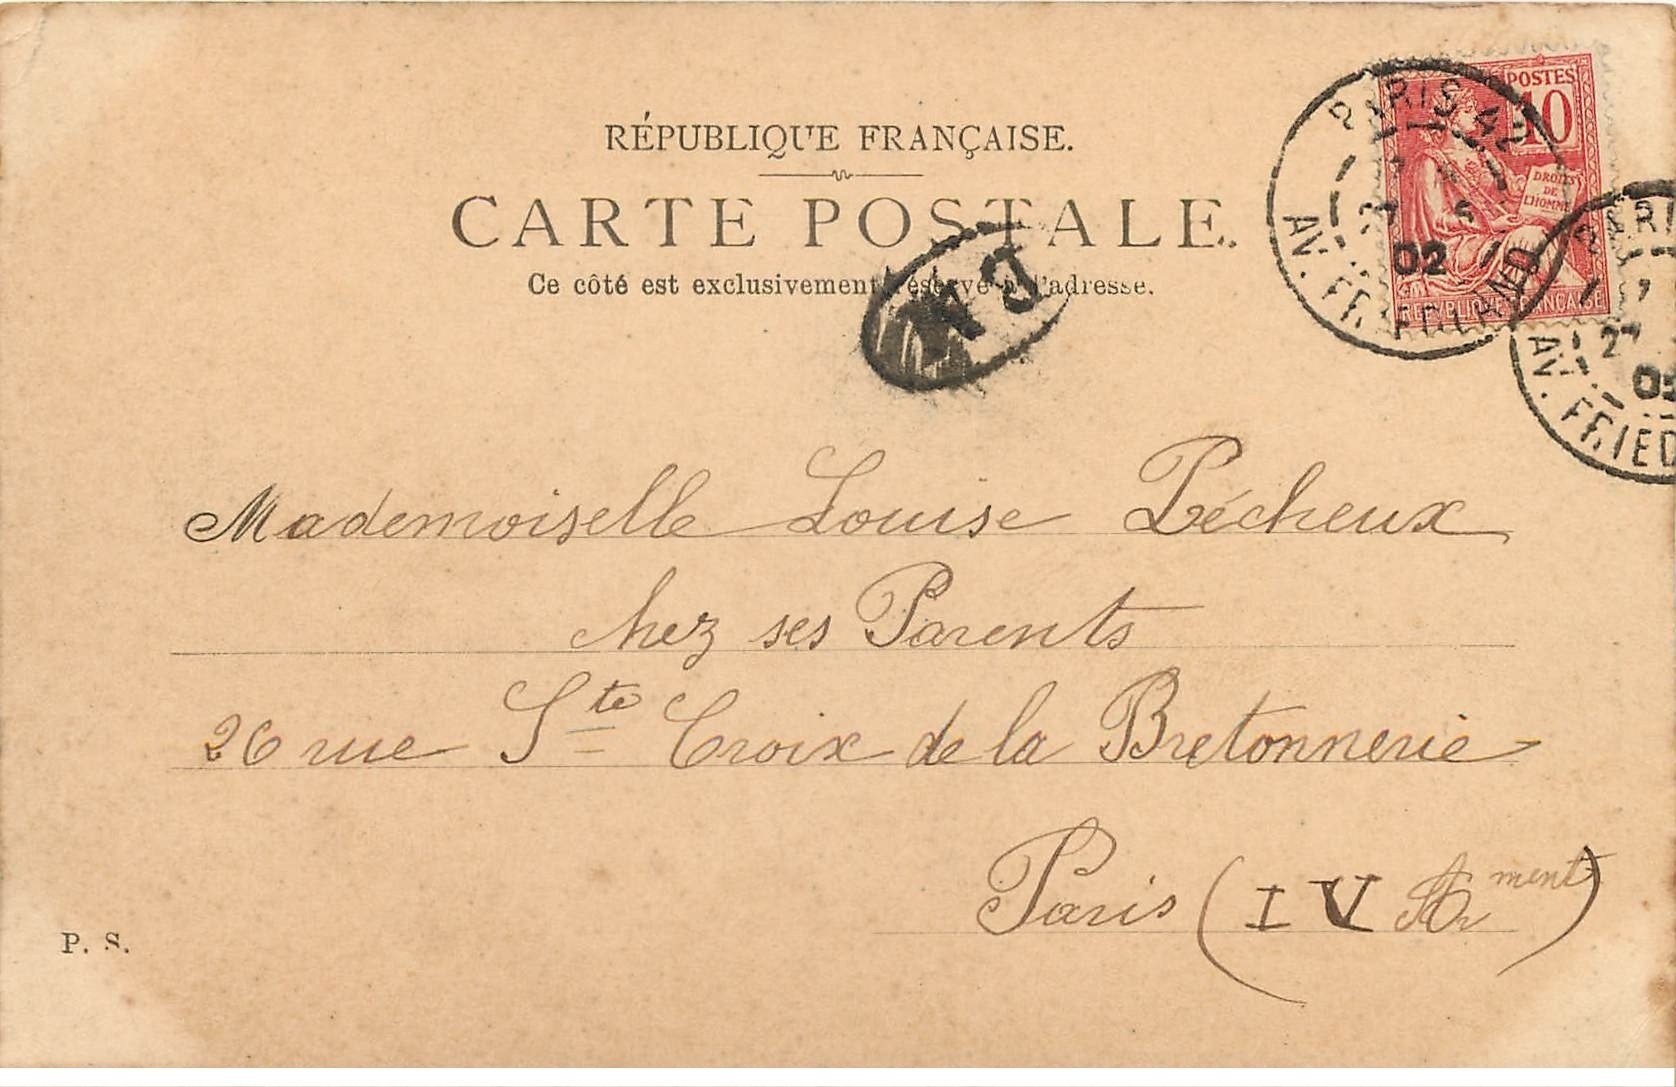 RÉPUBLIQUE FRANÇAISE.
CARTE POSTALE.
Ce côté est exclusivement réservé à l'adresse.
POSTES
10
DROITS
DE
L'HOMME
REPUBLIQUE FRANÇAISE
PARIS 42
02
AV. FRIEDLAND
PARI
27
02
AV. FRIED
Mademoiselle Louise Pécheux
chez ses Parents
26 rue Ste Croix de la Bretonnerie
Paris (IV Arment)
P. S.